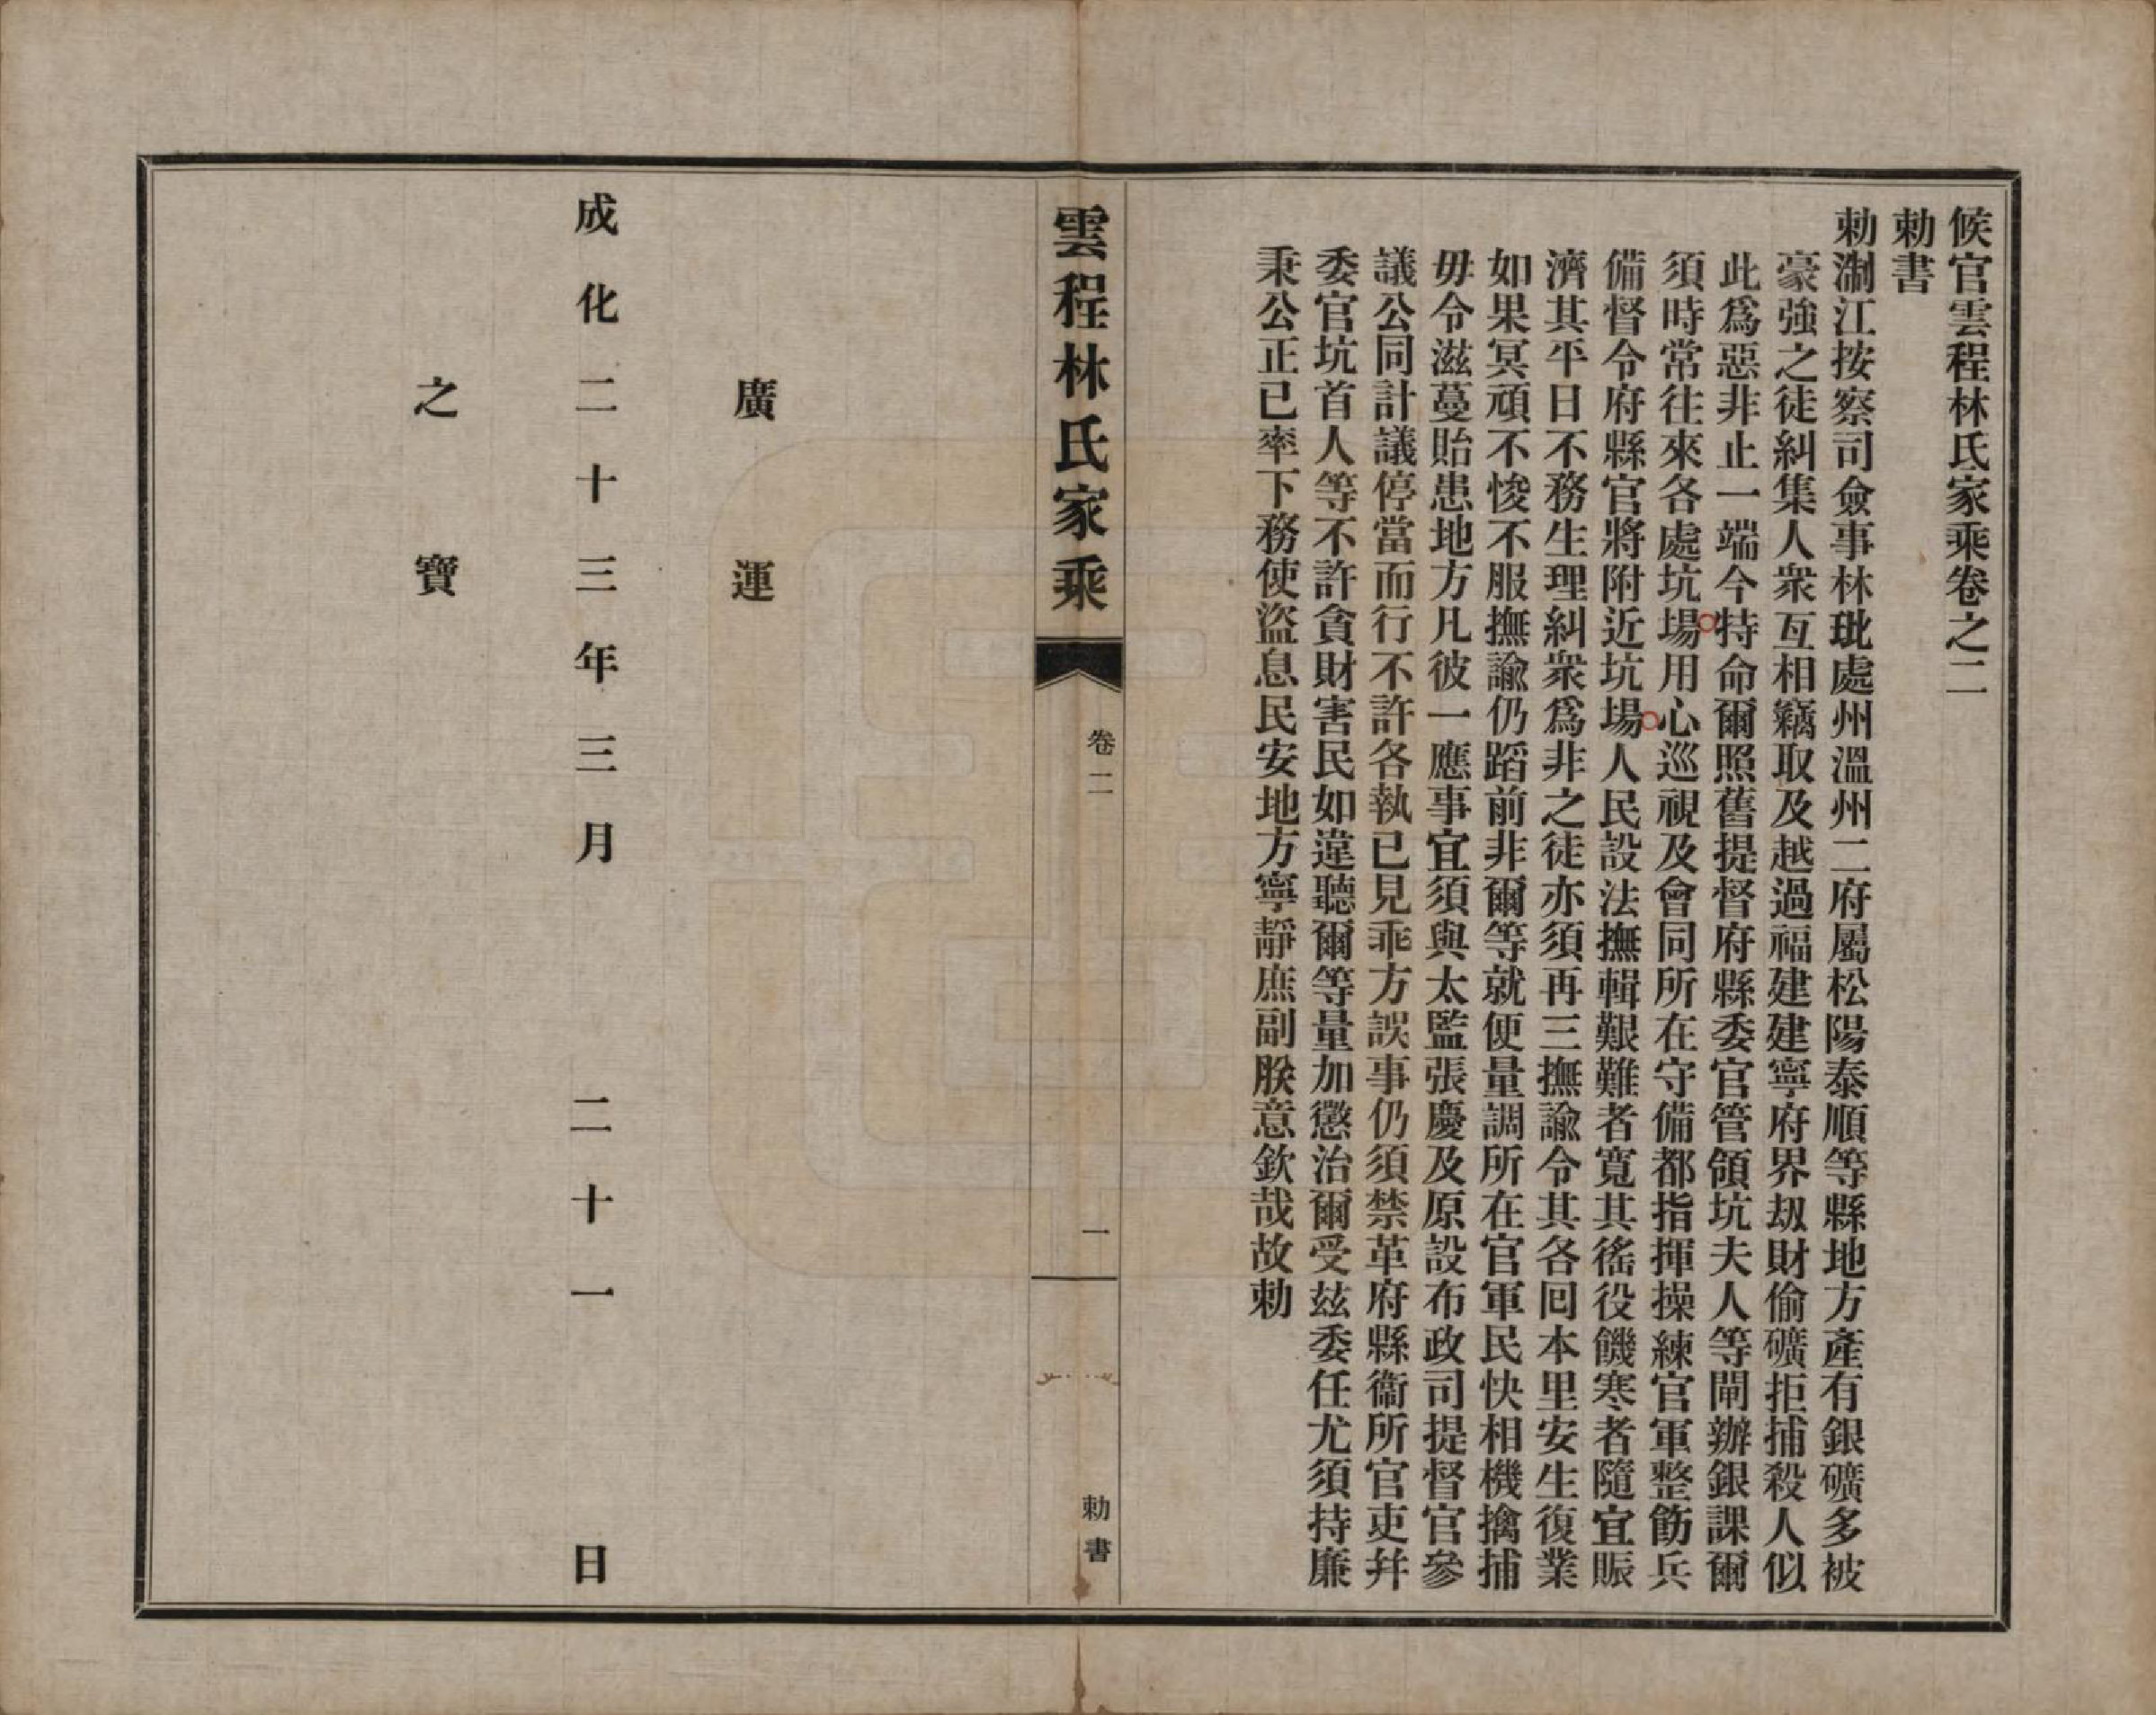 候官雲程林氏家乘卷之二
勅書
勅淛江按察司僉事林玭處州溫州二府屬松陽泰順等縣地方產有銀礦多被
豪強之徒糾集人衆互相竊取及越過福建建寧府界刼財偷礦拒捕殺人似
此爲惡非止一端今特命爾照舊提督府縣委官管領坑夫人等閘辦銀課爾
須時常往來各處坑場用心巡視及會同所在守備都指揮操練官軍整飭兵
備督令府縣官將附近坑場人民設法撫輯艱難者寬其徭役饑寒者隨宜賑
濟其平日不務生理糾衆爲非之徒亦須再三撫諭令其各囘本里安生復業
如果冥頑不悛不服撫諭仍蹈前非爾等就便量調所在官軍民快相機擒捕
毋令滋蔓貽患地方凡彼一應事宜須與太監張慶及原設布政司提督官參
議公同計議停當而行不許各執已見乖方誤事仍須禁革府縣衞所官吏幷
委官坑首人等不許貪財害民如違聽爾等量加懲治爾受玆委任尤須持廉
秉公正已率下務使盜息民安地方寧靜庶副朕意欽哉故勅
雲程林氏家乘
卷二
一
勅書
廣運
成化二十三年三月 二十一 日
之寶